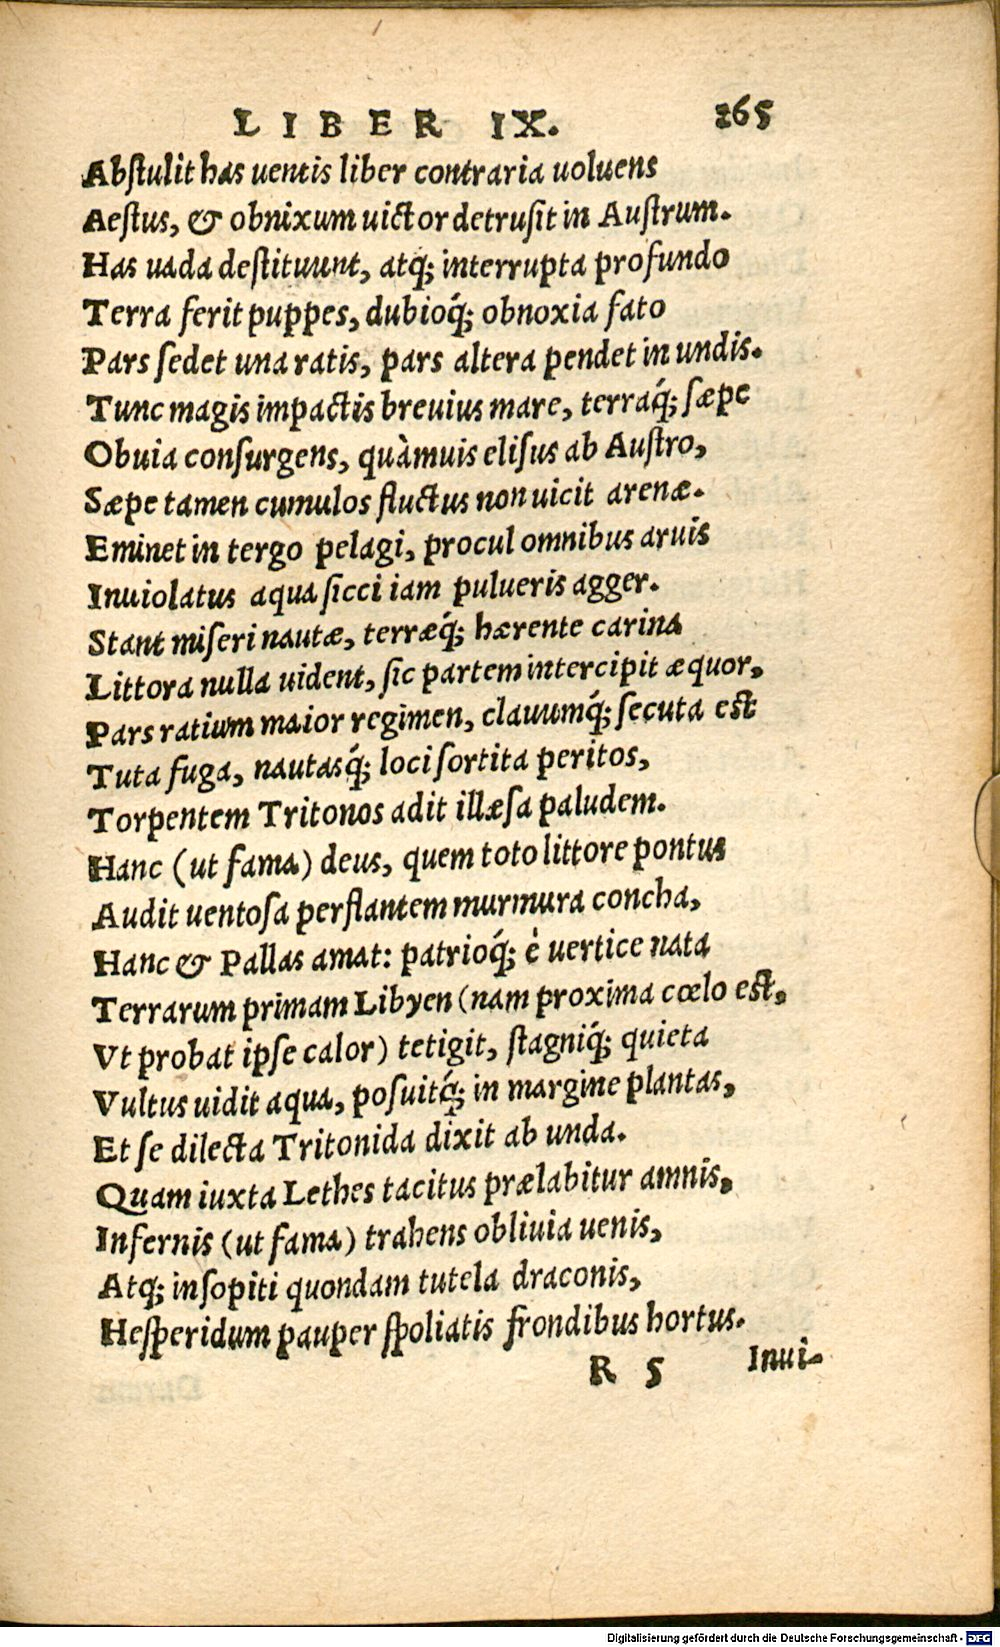 LIBER IX. 265
Abstulit has uentis liber contraria uoluens
Aestus, & obnixum uictor detrusit in Austrum.
Has uada destituunt, atq; interrupta profundo
Terra ferit puppes, dubioq́; obnoxia fato
Pars sedet una ratis, pars altera pendet in undis.
Tunc magis impactis breuius mare, terraq́; sæpe
Obuia consurgens, quàmuis elisus ab Austro,
Sæpe tamen cumulos fluctus non uicit arenæ.
Eminet in tergo pelagi, procul omnibus aruis
Inuiolatus aqua sicci iam pulueris agger.
Stant miseri nautæ, terræq́; hærente carina
Littora nulla uident, sic partem intercipit æquor,
Pars ratium maior regimen, clauumq́; secuta est
Tuta fuga, nautasq́; loci sortita peritos,
Torpentem Tritonos adit illæsa paludem.
Hanc (ut fama) deus, quem toto littore pontus
Audit uentosa perflantem murmura concha,
Hanc & Pallas amat: patrioq́; è uertice nata
Terrarum primam Libyen (nam proxima cœlo est,
Vt probat ipse calor) tetigit, stagniq́; quieta
Vultus uidit aqua, posuitq́; in margine plantas,
Et se dilecta Tritonida dixit ab unda.
Quam iuxta Lethes tacitus prælabitur amnis,
Infernis (ut fama) trahens obliuia uenis,
Atq; insopiti quondam tutela draconis,
Hesperidum pauper spoliatis frondibus hortus.
R 5 Inui-
Digitalisierung gefördert durch die Deutsche Forschungsgemeinschaft - DFG